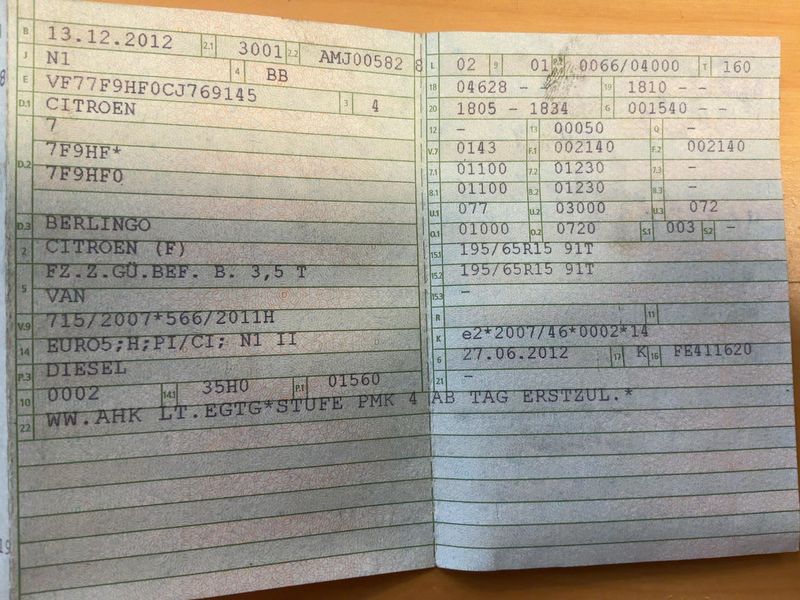 B 13.12.2012 2.1 3001 2.2 AMJ00582 8
J N1 4 BB
E VF77F9HF0CJ769145 3 4
D.1 CITROEN
7
D.2 7F9HF*
7F9HF0
D.3 BERLINGO
2 CITROEN (F)
5 FZ.Z.GÜ.BEF. B. 3,5 T
VAN
V.9 715/2007*566/2011H
14 EURO5;H;PI/CI; N1 II
P.3 DIESEL
10 0002 14.1 35H0 P.1 01560
22 WW.AHK LT.EGTG*STUFE PMK 4 AB TAG ERSTZUL.*
L 02 9 01 0066/04000 T 160
18 04628 - 19 1810 - -
20 1805 - 1834 G 001540 - -
12 - 13 00050 Q -
V.7 0143 F.1 002140 F.2 002140
7.1 01100 7.2 01230 7.3 -
8.1 01100 8.2 01230 8.3 -
U.1 077 U.2 03000 U.3 072
O.1 01000 O.2 0720 S.1 003 S.2 -
15.1 195/65R15 91T
15.2 195/65R15 91T
15.3 -
R 11
K e2*2007/46*0002*14
6 27.06.2012 17 K 16 FE411620
21 -